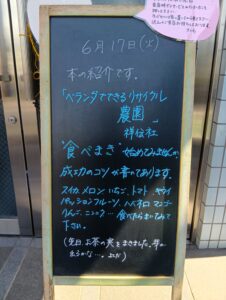 6月17日(火)
本の紹介です。
「ベランダでできるリサイクル
農園」
祥伝社
"食べまき" 始めてみませんか
成功のコツが書いてあります。
スイカ、メロン、いちご、トマト、キウイ
パッションフルーツ、ハバネロ、マンゴー
りんご、ニンニク… 食べたらまいてみて
下さい。
(先日、お茶の実をまきました。芽が
出るかな…。